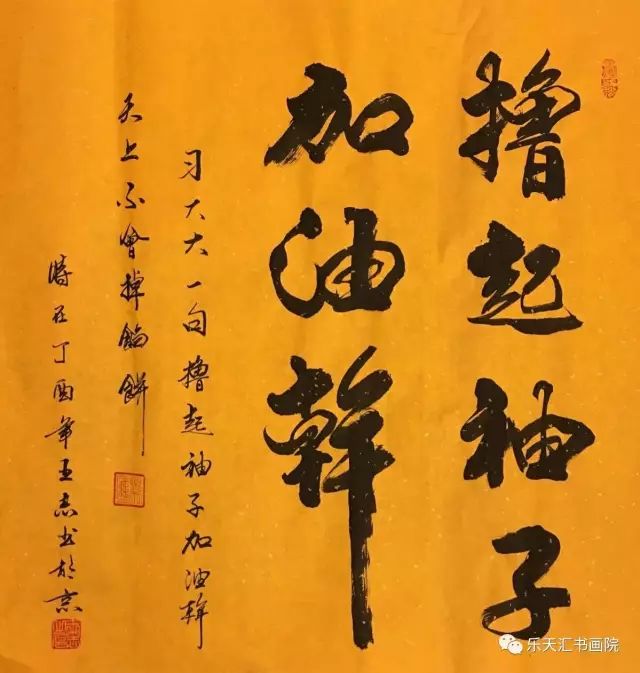 撸起袖子
加油幹
习大大一句撸起袖子加油幹
天上不會掉餡餅
時在丁酉年王志书於京
乐天汇书画院